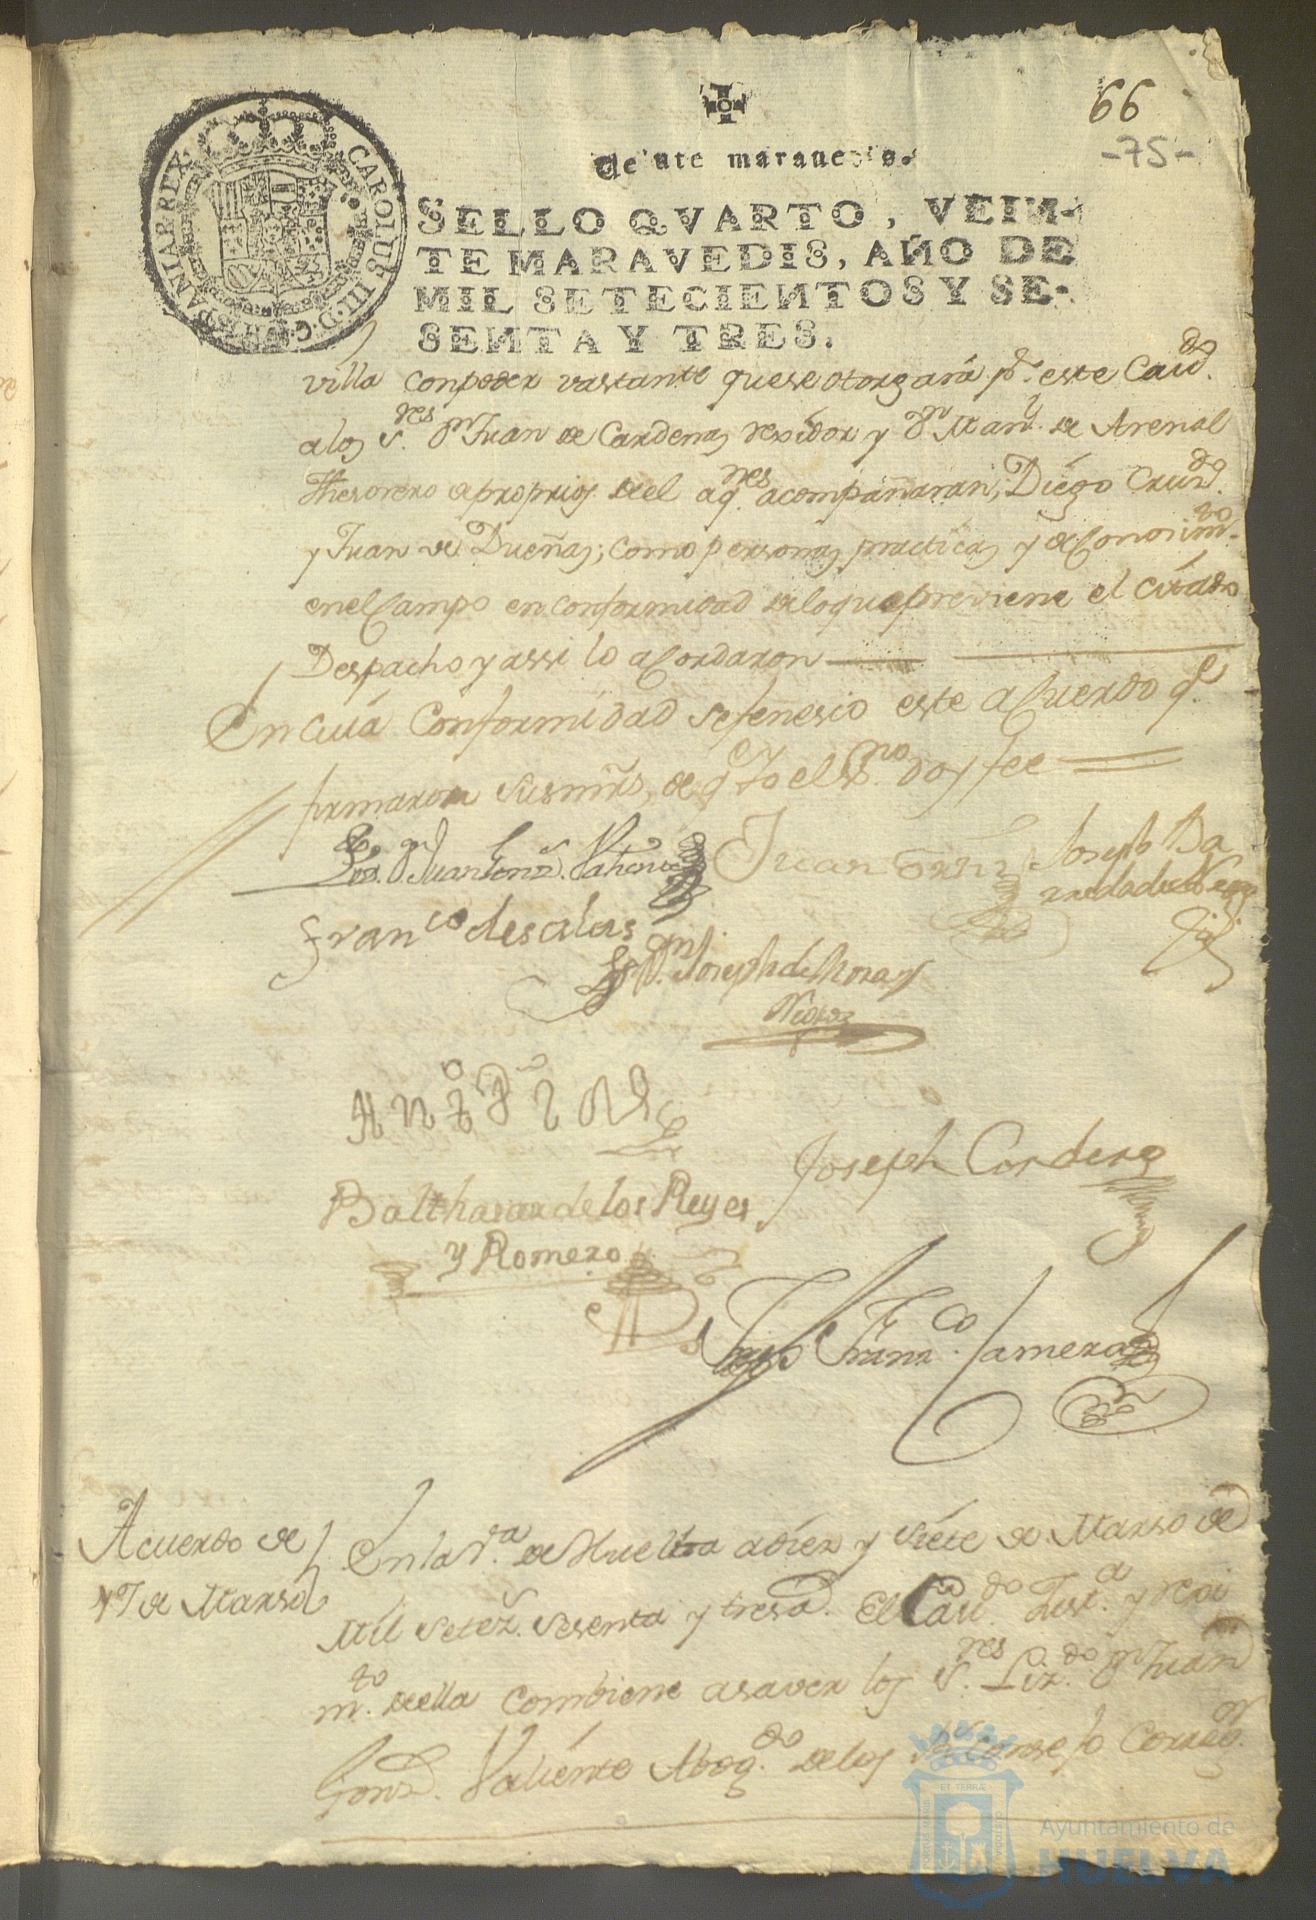 66
-75-
CAROLUS III. D. G. HISPANIAR REX.
Veinte maravedis.
SELLO QVARTO, VEIN-
TE MARAVEDIS, AÑO DE
MIL SETECIENTOS Y SE-
SENTA Y TRES.
villa con poder vastante que se otorgará pr. este Cavdo.
a los Sres. Dn. Juan de Cardenas rexidor y Dn. Manl. de Arenal
Thesorero de proprios del a qnes. acompañaran, Diego Cruzdo.
y Juan de Dueñas; como personas practicas y de Conosimto.
en el Campo en conformidad de lo que previene el citado
Despacho y assi lo acordaron
En cuia conformidad se fenesio este acuerdo qe.
firmaron sus mrds, de qe. Yo el Esno. doy fee
Lizdo. Dn. Juan Gonz. Valiente
Juan
Joseph Ba
rreda de Vega
Franco de salas
Dn. Joseph de Mora
Balthasar de los Reyes
y Romero
Joseph Cordero
Franco. Camera
Acuerdo de
17 de Marso
En la Va. de Huelva a diez y siete de Marso de
Mil Setez. Sesenta y tres a. El Cavdo. Justa. y rexi
mto. de ella combiene a saver los Sres. Lizdo. Dn. Juan
Gonz. Valiente Abogdo. de los Rs. Consejo Corregor.
Ayuntamiento de
HUELVA